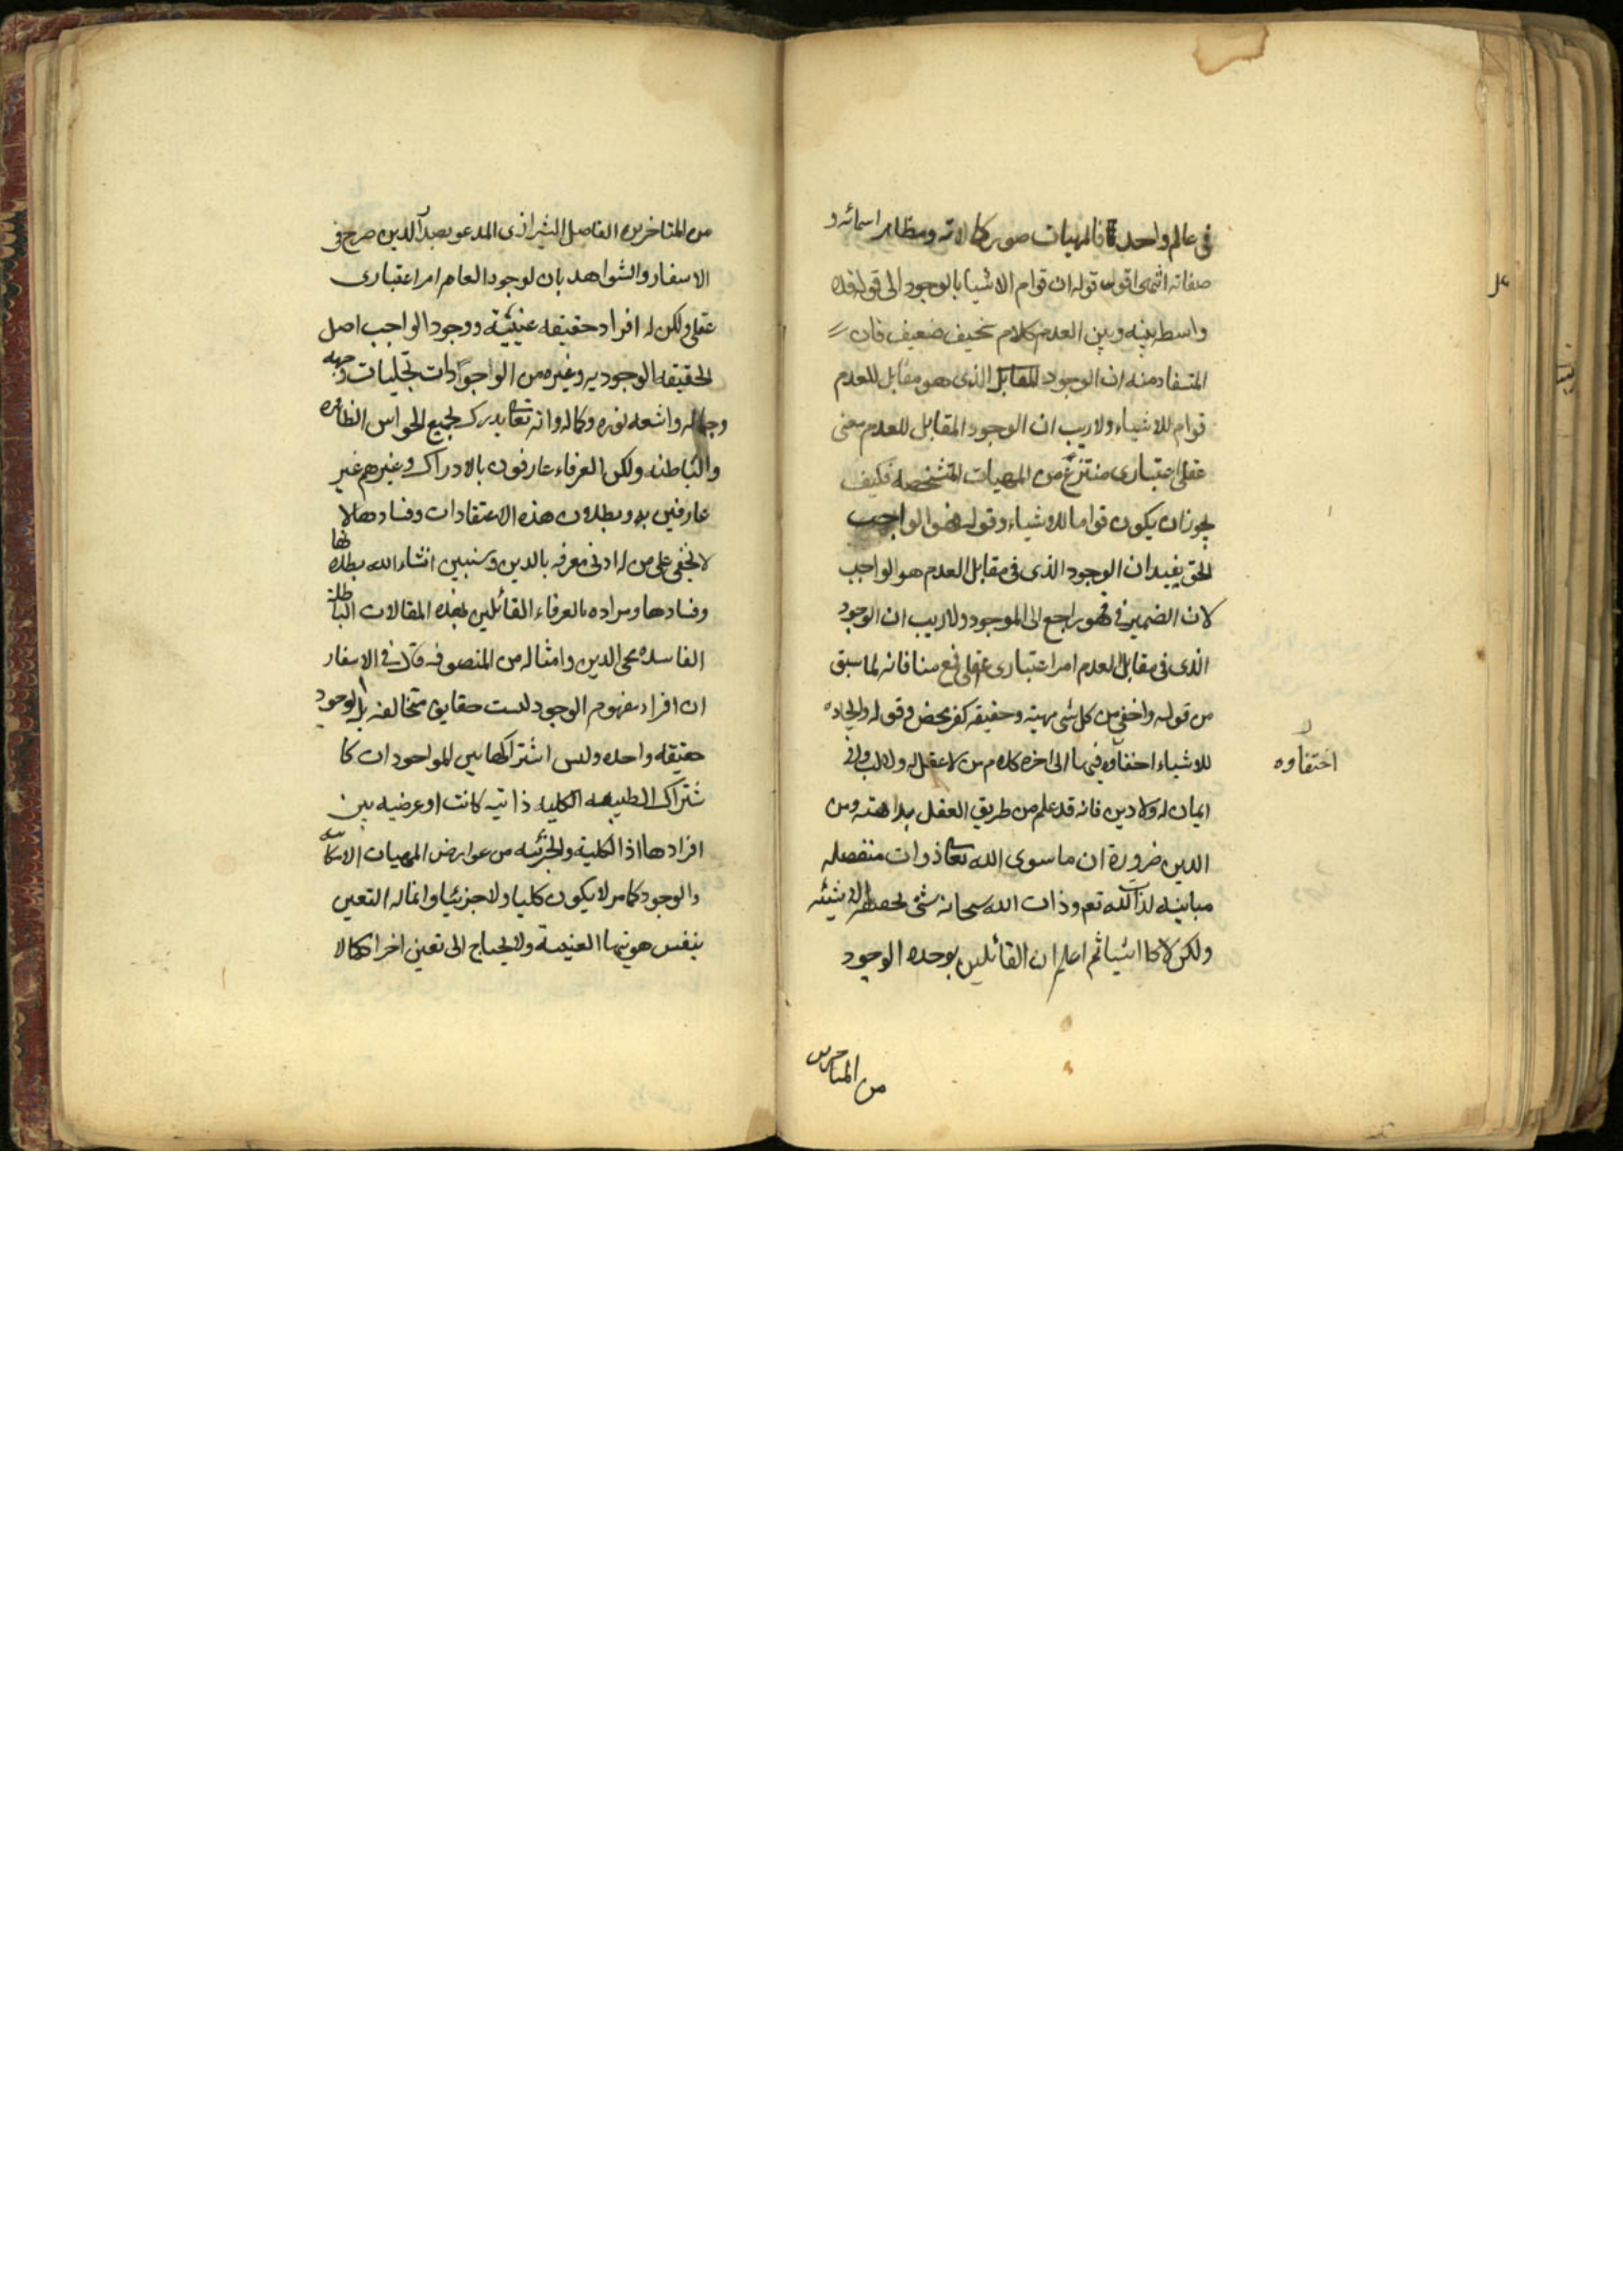 في عالم واحد فالمهيات صور كمالاته ومظاهر اسمائه و
صفاته انتهى اقول قوله ان قوام الاشيا بالوجود الى قوله فلا
واسطه بينه وبين العدم كلام سخيف ضعيف فان
المستفاد منه ان الوجود المقابل الذي هو مقابل للعدم
قوام للاشياء ولا ريب ان الوجود المقابل للعدم معنى
عقلى اعتبارى منتزع من المهيات المتشخصه فكيف
يجوز ان يكون قواما للاشياء وقوله فهو الواجب
الحق يفيد ان الوجود الذى فى مقابل العدم هو الواجب
لان الضمير فى فهو راجع الى الموجود ولا ريب ان الوجود
الذى فى مقابل العدم امر اعتبارى عقلى فمع منافاته لما سبق
من قوله واخفى من كل شى مهية وحقيقه كفر محض وقوله وايجاده
للاشياء اختفاؤه فيها الى اخره كلام من لا عقل له ولا لب ولا
ايمان له ولا دين فانه قد علم من طريق العقل بداهته ومن
الدين ضرورة ان ما سوى الله تعالى ذوات منفصله
مباينه لذات الله تعم وذات الله سبحانه شى بحقيقة الشيئيه
ولكن لا كالاشيا ثم اعلم ان القائلين بوحده الوجود
اختفاوه
من المتاخرين
من المتاخرين الفاضل الشيرازى المدعو بصدر الدين صرح فى
الاسفار والشواهد بان لوجود العام امر اعتبارى
عقلى ولكن له افراد حقيقه عينيته ووجود الواجب اصل
الحقيقه الوجوديه وغيره من الوجودات تجليات وجهه
وجماله واشعه نوره وكماله وانه تعالى يدرك بجميع الحواس الظاهره
والباطنه ولكن العرفاء عارفون بالادراك وغيرهم غير
عارفين به وبطلان هذه الاعتقادات وفسادها لا
لا يخفى على من له ادنى معرفه بالدين وسنبين انشاء الله بطلانها
وفسادها ومراده بالعرفاء القائلين بهذه المقالات الباطلة
الفاسده محى الدين وامثاله من المتصوفه قال فى الاسفار
ان افراد مفهوم الوجود ليست حقايق متخالفه بل الوجود
حقيقه واحده وليس اشتراكها بين الموجودات كا
شتراك الطبيعه الكليه ذاتيه كانت او عرضيه بين
افرادها اذ الكلية والجزئيه من عوارض المهيات الامكانيه
والوجود كما مر لا يكون كليا ولا جزئيا وانما له التعين
بنفس هويتها العينية ولا يحتاج الى تعين اخر كما لا